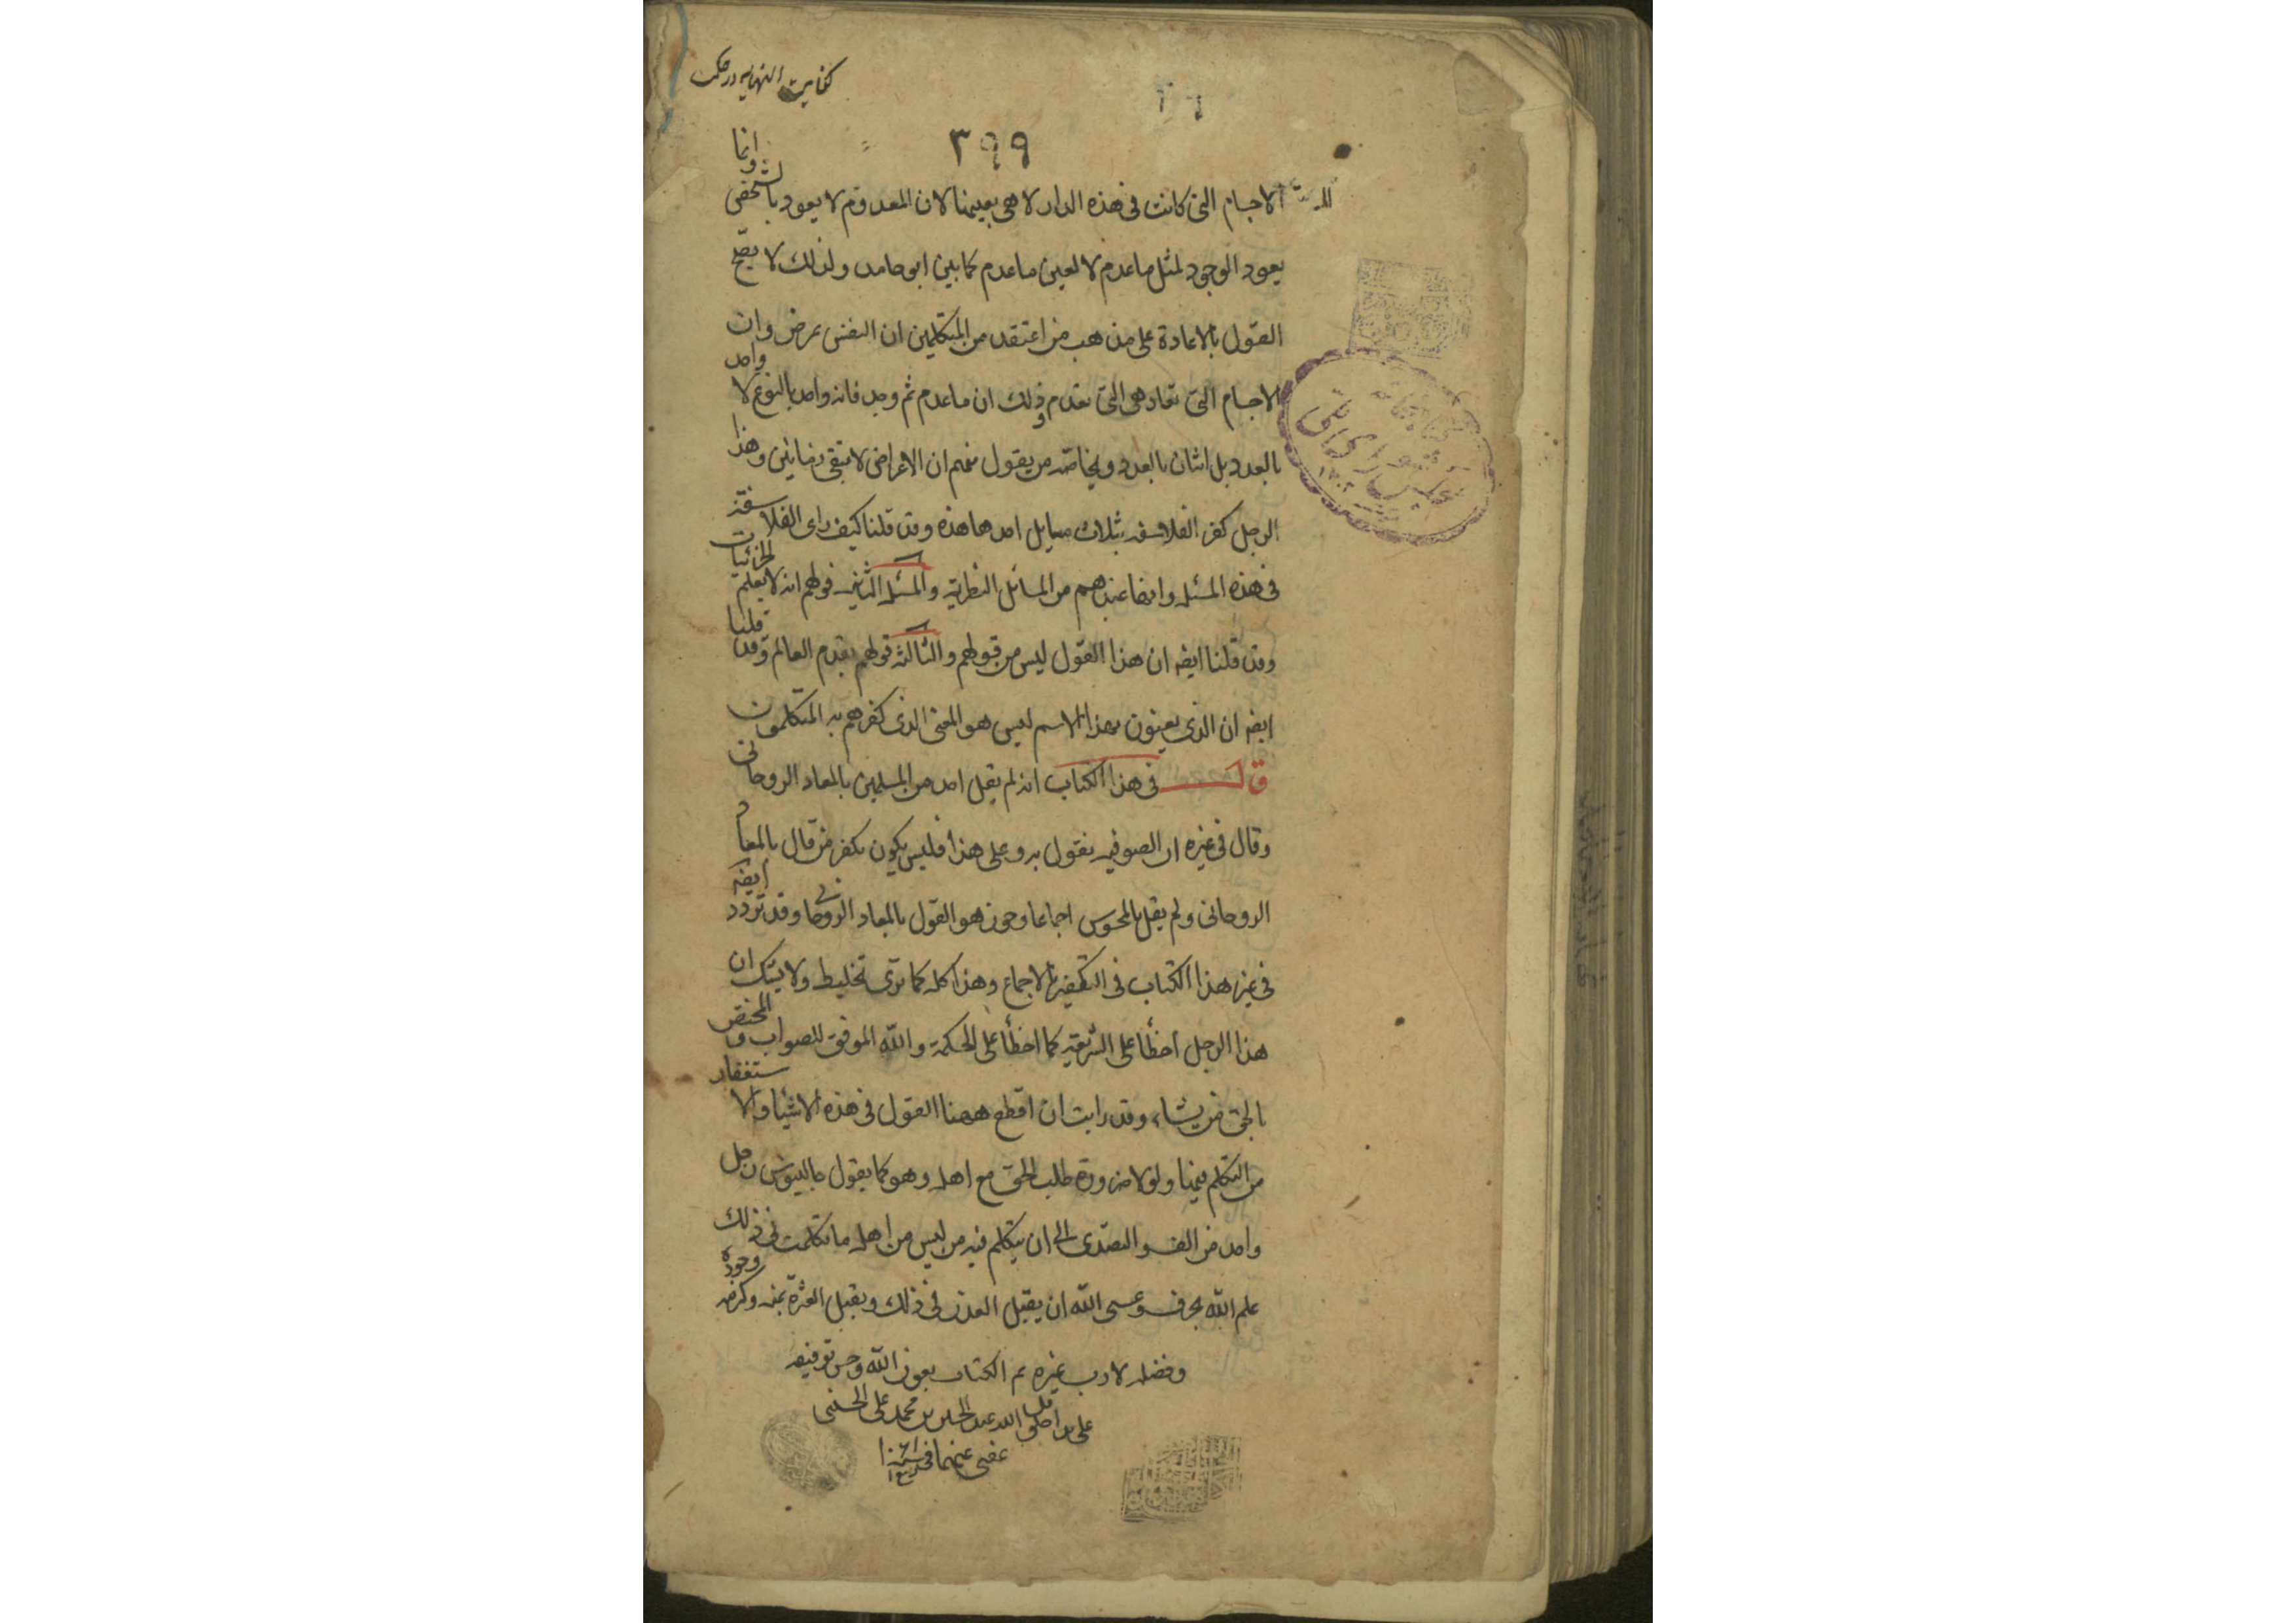 كفايت النهايه در حكمت
٣٩٩
الاجسام التى كانت فى هذه الدار لا هى بعينها لان المعدوم لا يعود بالشخص وانما
يعود الوجود لمثل ما عدم لا لعين ما عدم كما بين ابو حامد ولذلك لا يصح
القول بالاعادة على مذهب من اعتقد من المتكلمين ان النفس عرض وان
الاجسام التى تعاد هى التى تعدم وذلك ان ما عدم ثم وجد فانه واحد بالنوع لا واحد
بالعدد بل اثنان بالعدد وبخاصة من يقول منهم ان الاعراض لا تبقى زمانين وهذا
الرجل كفر الفلاسفه بثلاث مسايل احدها هذه وقد قلنا كيف راى الفلاسفة
فى هذه المسئله وانها عندهم من المسائل النظرية والمسئله الثانيه قولهم انه لا يعلم الجزئيات
وقد قلنا ايضه ان هذا القول ليس من قولهم والثالثه قولهم بقدم العالم وقد قلنا
ايضه ان الذى يعنون بهذا الاسم ليس هو المعنى الذى كفرهم به المتكلمون
قال فى هذا الكتاب انه لم يقل احد من المسلمين بالمعاد الروحانى
وقال فى غيره ان الصوفيه تقول به وعلى هذا فليس يكون يكفر من قال بالمعاد
الروحانى ولم يقل بالمحسوس اجماعا وجوز هو القول بالمعاد الروحانى وقد تردد ايضه
فى غير هذا الكتاب فى التكفير بالاجماع وهذا كله كما ترى تخليط ولا يشك ان
هذا الرجل أخطأ على الشريعه كما اخطأ على الحكمة والله الموفق للصواب والمختص
بالحق من يشاء وقد رايت ان اقطع ههنا القول فى هذه الاشيا والاستغفار
من التكلم فيها ولولا ضرورة طلب الحق مع اهله وهو كما يقول جالينوس رجل
واحد من الف والتصدى الى ان يتكلم فيه من ليس من اهله ما تكلمت فى ذلك
علم الله بحرف وعسى الله ان يقبل العذر فى ذلك ويقيل العثرة بمنه وكرمه وجوده
وفضله لا رب غيره تم الكتاب بعون الله وحسن توفيقه
على يد اقل خلق الله عبد الحسين بن محمد على الحسنى
عفى عنهما فى